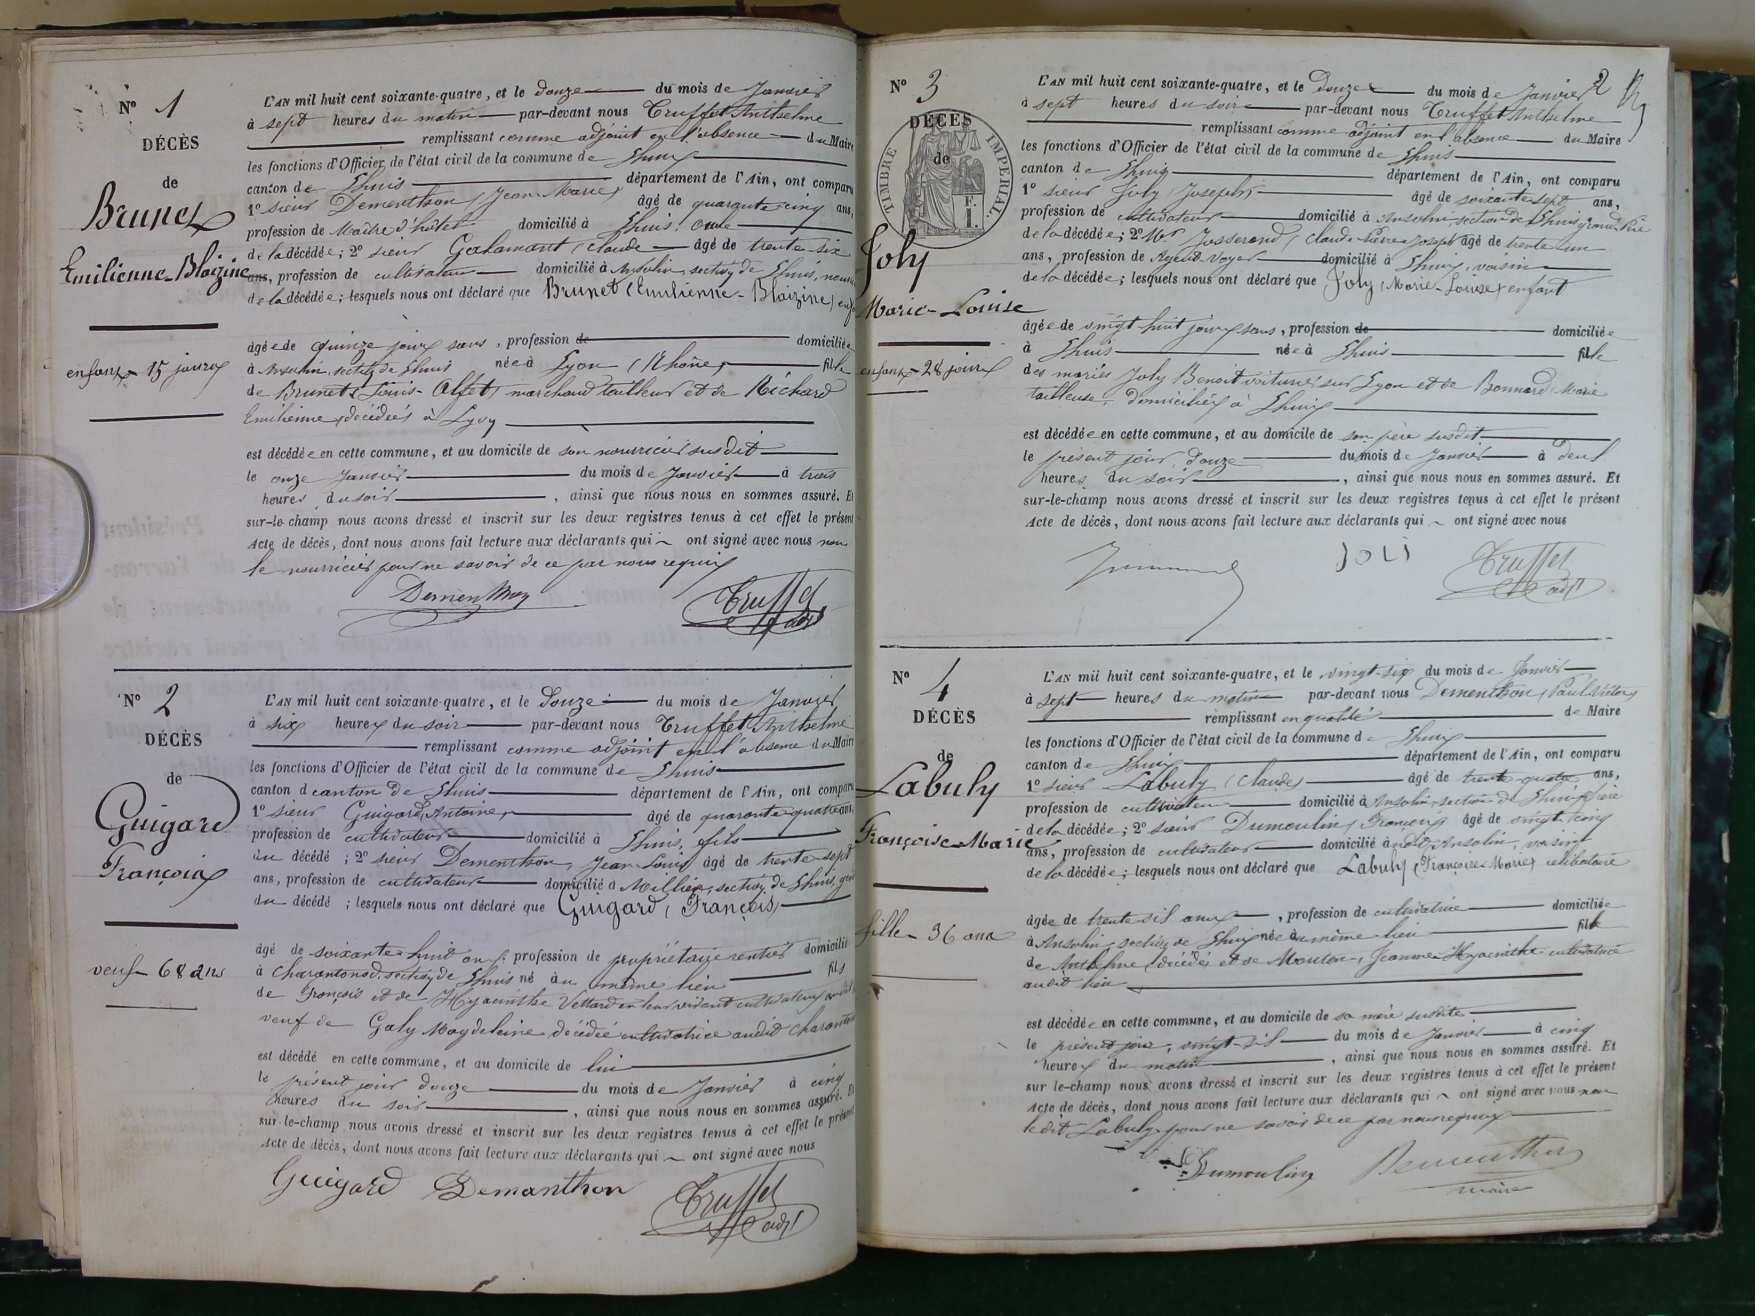 N° 1
DÉCÈS
de
Brunet
Emilienne-Blaizine
enfant - 15 jours
L'AN mil huit cent soixante-quatre, et le douze du mois de Janvier
à sept heures du matin par-devant nous Truffet Anthelme
remplissant comme adjoint en l'absence du Maire
les fonctions d'Officier de l'état civil de la commune de Lhuis
canton de Lhuis département de l'Ain, ont comparu
1° sieur Dementhon (Jean-Marie) âgé de quarante cinq ans,
profession de Maître d'hôtel domicilié à Lhuis,
de la décédée ; 2° sieur Claude âgé de trente six
ans, profession de cultivateur domicilié à Ansolin, section de Lhuis,
de la décédée ; lesquels nous ont déclaré que Brunet (Emilienne-Blaizine)
âgée de quinze jours sans, profession de domiciliée
à Ansolin, section de Lhuis née à Lyon (Rhône) fille
de Brunet (Louis-) marchand tailleur et de Richard
Emilienne, décédée à Lyon
est décédée en cette commune, et au domicile de son nourricier susdit
le onze Janvier du mois de Janvier à trois
heures du soir, ainsi que nous nous en sommes assuré. Et
sur-le-champ nous avons dressé et inscrit sur les deux registres tenus à cet effet le présent
Acte de décès, dont nous avons fait lecture aux déclarants qui ont signé avec nous non
le nourricier pour ne savoir de ce par nous requis
Dementhon
Truffet
adjt
N° 2
DÉCÈS
de
Guigard
François
veuf - 68 ans
L'AN mil huit cent soixante-quatre, et le douze du mois de Janvier
à six heures du soir par-devant nous Truffet Anthelme
remplissant comme adjoint en l'absence du Maire
les fonctions d'Officier de l'état civil de la commune de Lhuis
canton d canton de Lhuis département de l'Ain, ont comparu
1° sieur Guigard Antoine âgé de quarante quatre ans,
profession de cultivateur domicilié à Lhuis, fils
du décédé ; 2° sieur Dementhon, Jean-Louis âgé de trente sept
ans, profession de cultivateur domicilié à Millieu, section de Lhuis,
du décédé ; lesquels nous ont déclaré que Guigard (François)
âgé de soixante huit ans, profession de propriétaire rentier domicilié
à Charantonod, section de Lhuis né au même lieu fils
de François et de Hyacinthe Vettard en leur vivant cultivateurs
veuf de Galy Magdeleine décédée cultivatrice audit
est décédé en cette commune, et au domicile de lui
le présent jour douze du mois de Janvier à cinq
heures du soir, ainsi que nous nous en sommes assuré. Et
sur-le-champ nous avons dressé et inscrit sur les deux registres tenus à cet effet le présent
Acte de décès, dont nous avons fait lecture aux déclarants qui ont signé avec nous
Guigard Demanthon
Truffet
adjt
2
N° 3
DÉCÈS
de
TIMBRE IMPERIAL.
Joly
Marie-Louise
enfant - 28 jours
L'AN mil huit cent soixante-quatre, et le Douze du mois de Janvier
à sept heures du soir par-devant nous Truffet Anthelme
remplissant comme adjoint en l'absence du Maire
les fonctions d'Officier de l'état civil de la commune de Lhuis
canton de Lhuis département de l'Ain, ont comparu
1° sieur Joly (Joseph) âgé de soixante sept ans,
profession de cultivateur domicilié à Ansolin, section de Lhuis, grand père
de la décédée ; 2° Mr Josserand (Claude-Pierre-Joseph âgé de trente un
ans, profession de Agent-Voyer domicilié à Lhuis, voisin
de la décédée ; lesquels nous ont déclaré que Joly (Marie-Louise) enfant
âgée de vingt-huit jours sans, profession de domiciliée
à Lhuis née à Lhuis fille
des mariés Joly Benoit voiturier sur Lyon et de Bonnard Marie
tailleuse, domiciliés à Lhuis
est décédée en cette commune, et au domicile de son père susdit
le présent jour, douze du mois de Janvier à deux
heures du soir, ainsi que nous nous en sommes assuré. Et
sur-le-champ nous avons dressé et inscrit sur les deux registres tenus à cet effet le présent
Acte de décès, dont nous avons fait lecture aux déclarants qui ont signé avec nous
JOLI
Truffet
adjt
N° 4
DÉCÈS
de
Labuly
Françoise-Marie
fille - 36 ans
L'AN mil huit cent soixante-quatre, et le vingt-six du mois de Janvier
à sept heures du matin par-devant nous Dementhon (Paul Victor)
remplissant en qualité de Maire
les fonctions d'Officier de l'état civil de la commune de Lhuis
canton de Lhuis département de l'Ain, ont comparu
1° sieur Labuly (Claude) âgé de trente-quatre ans,
profession de cultivateur domicilié à Ansolin, section de Lhuis, frère
de la décédée ; 2° sieur Dumoulin (François) âgé de vingt-cinq
ans, profession de cultivateur domicilié à dit Ansolin, voisin
de la décédée ; lesquels nous ont déclaré que Labuly (Françoise-Marie) célibataire
âgée de trente-six ans, profession de cultivatrice domiciliée
à Ansolin, section de Lhuis née au même lieu fille
de Anthelme (décédé) et de Jeanne-Hyacinthe cultivatrice
audit lieu
est décédée en cette commune, et au domicile de sa mère susdite
le présent jour, vingt-six du mois de Janvier à cinq
heures du matin, ainsi que nous nous en sommes assuré. Et
sur le-champ nous avons dressé et inscrit sur les deux registres tenus à cet effet le présent
Acte de décès, dont nous avons fait lecture aux déclarants qui ont signé avec nous non
le dit Labuly, pour ne savoir de ce par nous requis
Dumoulin Dementhon
maire